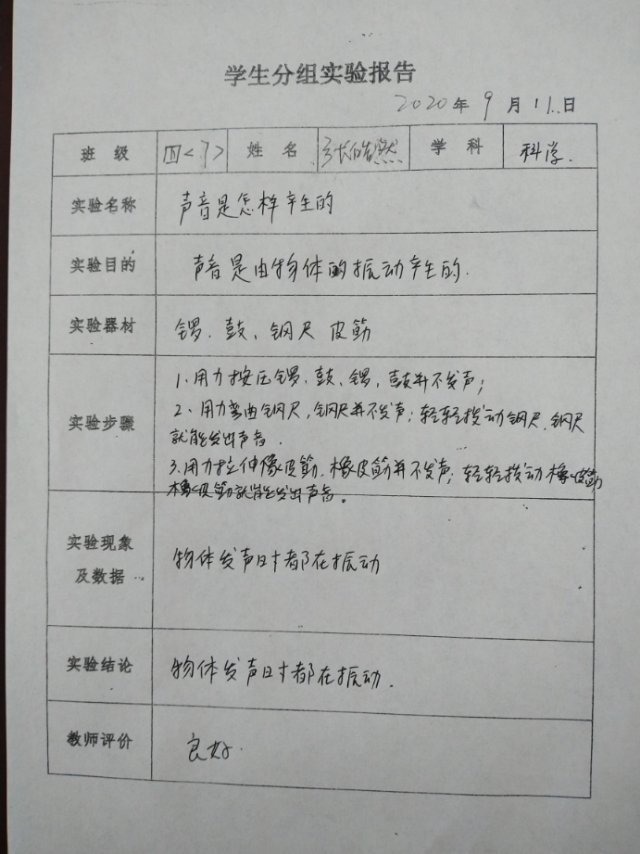 学生分组实验报告
2020年9月11日
班级 四<7> 姓名 张皓然 学科 科学.
实验名称 声音是怎样产生的
实验目的 声音是由物体的振动产生的.
实验器材 锣、鼓、钢尺 皮筋
1、用力按压锣、鼓、锣,鼓并不发声;
实验步骤 2、用力弯曲钢尺,钢尺并不发声;轻轻拨动钢尺、钢尺
就能发出声音.
3.用力拉伸橡皮筋.橡皮筋并不发声;轻轻拨动橡皮筋
橡皮筋就能发出声音。
实验现象
及数据 物体发声时都在振动
实验结论 物体发声时都在振动.
教师评价 良好.